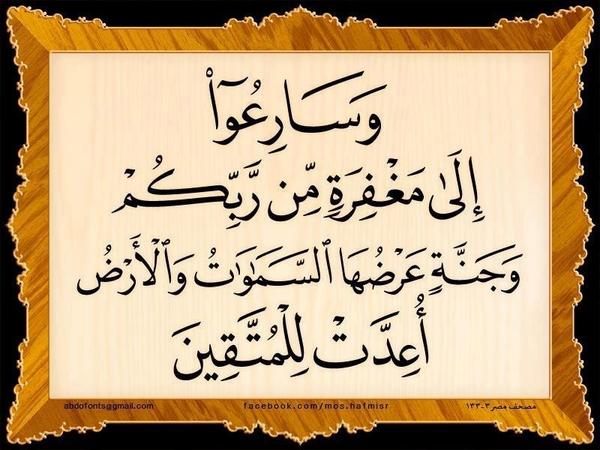 وَسَارِعُوٓا۟
إِلَىٰ مَغْفِرَةٍ مِّن رَّبِّكُمْ
وَجَنَّةٍ عَرْضُهَا ٱلسَّمَٰوَٰتُ وَٱلْأَرْضُ
أُعِدَّتْ لِلْمُتَّقِينَ
abdofonts@gmail.com facebook.com/mos.hafmisr مصحف مصر ٣-١٣٣